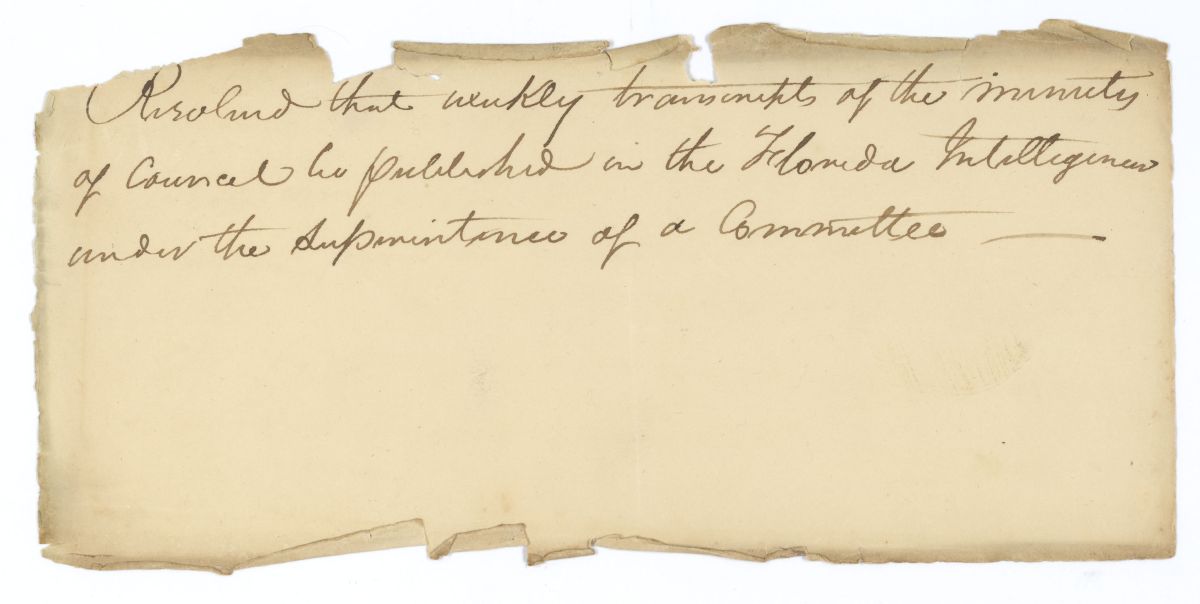 Resolved that weekly transcripts of the minutes
of Council be published in the Florida Intelligencer
under the Superintance of a Committee —